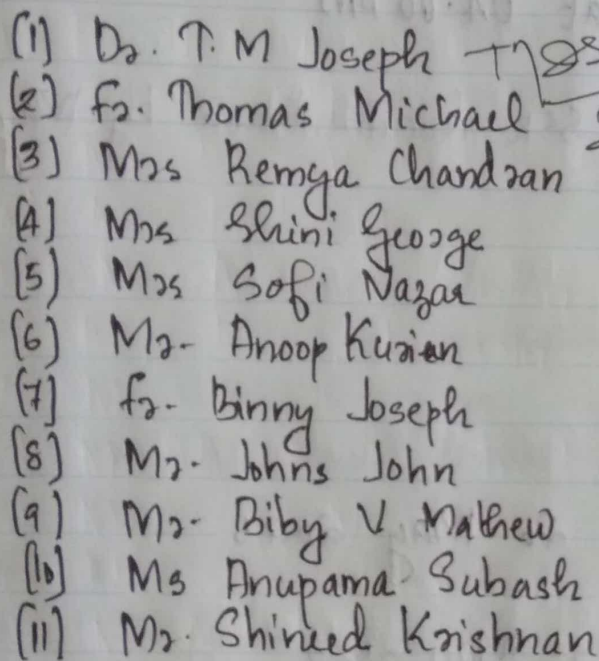 (1) Dr. T. M Joseph
(2) Fr. Thomas Michael
(3) Mrs Remya Chandran
(4) Mrs Shini George
(5) Mrs Sofi Nazar
(6) Mr. Anoop Kurian
(7) Fr. Binny Joseph
(8) Mr. Johns John
(9) Mr. Biby V Mathew
(10) Ms Anupama Subash
(11) Mr. Krishnan